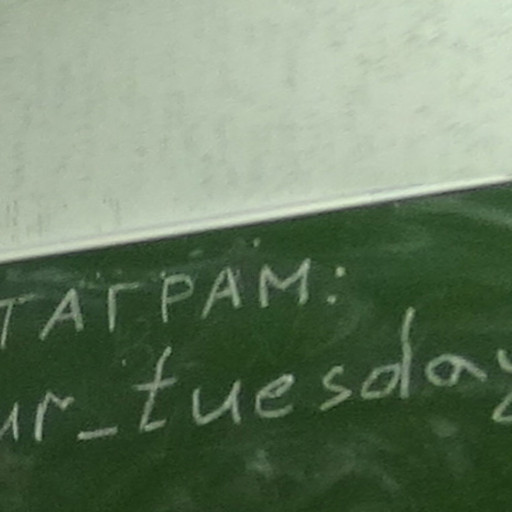 ТАГРАМ:
ur_tuesday